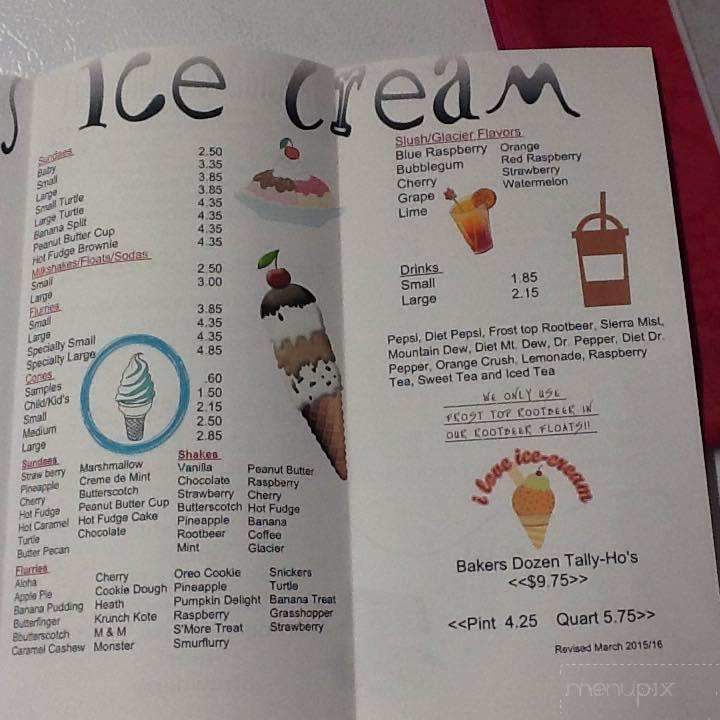 s Ice Cream
Sundaes
Baby 2.50
Small 3.35
Large 3.85
Small Turtle 3.85
Large Turtle 4.35
Banana Split 4.35
Peanut Butter Cup 4.35
Hot Fudge Brownie 4.35
Milkshakes/Floats/Sodas
Small 2.50
Large 3.00
Flurries
Small 3.85
Large 4.35
Specialty Small 4.35
Specialty Large 4.85
Cones
Samples .60
Child/Kid's 1.50
Small 2.15
Medium 2.50
Large 2.85
Sundaes
Straw berry
Pineapple
Cherry
Hot Fudge
Hot Caramel
Turtle
Butter Pecan
Marshmallow
Creme de Mint
Butterscotch
Peanut Butter Cup
Hot Fudge Cake
Chocolate
Shakes
Vanilla
Chocolate
Strawberry
Butterscotch
Pineapple
Rootbeer
Mint
Peanut Butter
Raspberry
Cherry
Hot Fudge
Banana
Coffee
Glacier
Flurries
Aloha
Apple Pie
Banana Pudding
Butterfinger
Bbutterscotch
Caramel Cashew
Cherry
Cookie Dough
Heath
Krunch Kote
M & M
Monster
Oreo Cookie
Pineapple
Pumpkin Delight
Raspberry
S'More Treat
Smurflurry
Snickers
Turtle
Banana Treat
Grasshopper
Strawberry
Slush/Glacier Flavors
Blue Raspberry
Bubblegum
Cherry
Grape
Lime
Orange
Red Raspberry
Strawberry
Watermelon
Drinks
Small 1.85
Large 2.15
Pepsi, Diet Pepsi, Frost top Rootbeer, Sierra Mist,
Mountain Dew, Diet Mt. Dew, Dr. Pepper, Diet Dr.
Pepper, Orange Crush, Lemonade, Raspberry
Tea, Sweet Tea and Iced Tea
WE ONLY USE
FROST TOP ROOTBEER IN
OUR ROOTBEER FLOATS!!
i love ice-cream
Bakers Dozen Tally-Ho's
<<$9.75>>
<<Pint 4.25 Quart 5.75>>
Revised March 2015/16
menupix